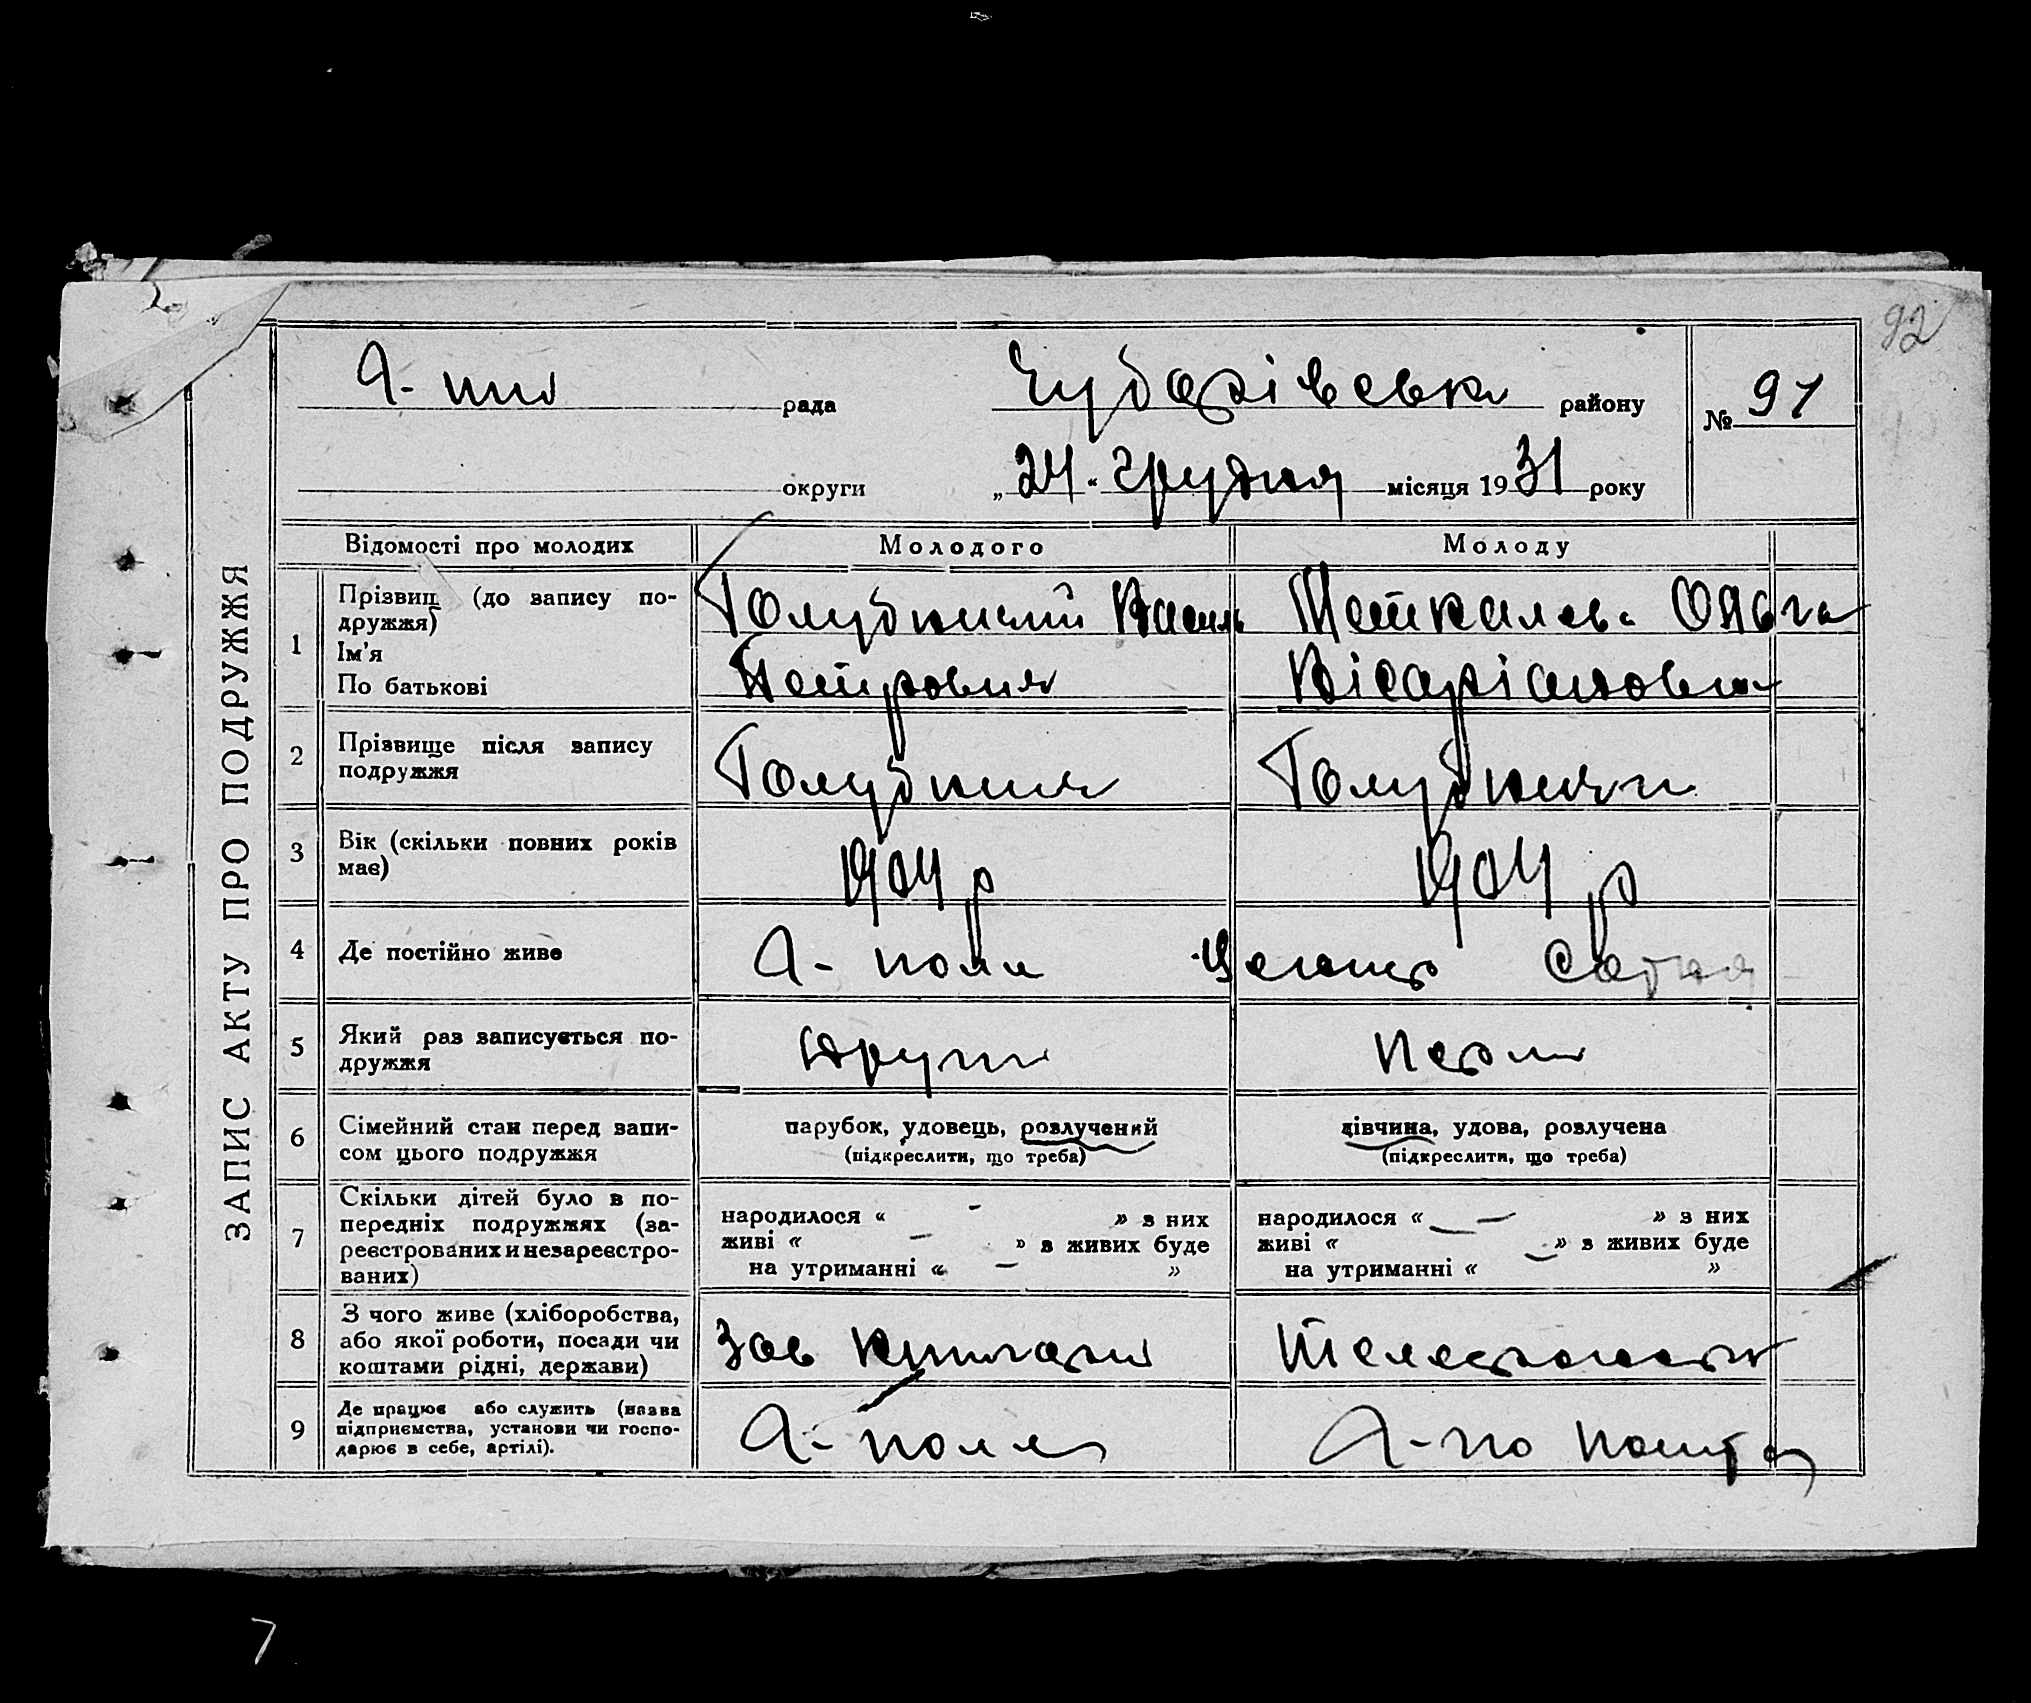 92
рада Чубарівськ району № 91
округи „ 24 “ грудня місяця 1931 року
ЗАПИС АКТУ ПРО ПОДРУЖЖЯ
Відомості про молодих Молодого Молоду
1
Прізвищ (до запису по-
дружжя)
Ім'я
По батькові
Василь
Петрович
Ольга
Вісаріановна
2
Прізвище після запису
подружжя
3
Вік (скільки повних років
має)
1904 р
1904 р
4
Де постійно живе
А- поле
5
Який раз записується по-
дружжя
други
перши
6
Сімейний стан перед запи-
сом цього подружжя
парубок, удовець, розлучений
(підкреслити, що треба)
дівчина, удова, розлучена
(підкреслити, що треба)
7
Скільки дітей було в по-
передніх подружжях (за-
реєстрованих и незареєстро-
ваних)
народилося « - » з них
живі « - » з живих буде
на утриманні « - »
народилося « - » з них
живі « - » з живих буде
на утриманні « »
8
З чого живе (хліборобства,
або якої роботи, посади чи
коштами рідні, держави)
Зав
9
Де працює або служить (назва
підприємства, установи чи госпо-
дарює в себе, артілі).
А- поле
А-по пошта
7